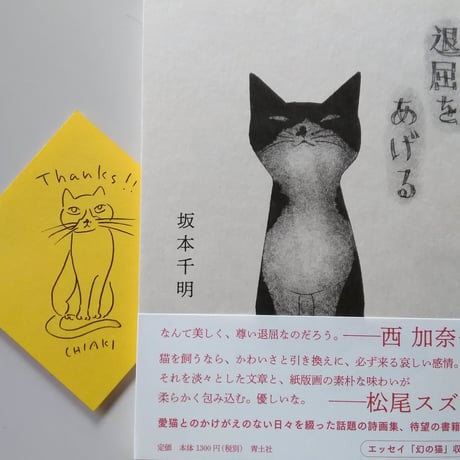 退屈を
あげる
坂本千明
Thanks!!
CHIAKI
なんて美しく、尊い退屈なのだろう。——西 加奈
猫を飼うなら、かわいさと引き換えに、必ず来る哀しい感情。
それを淡々とした文章と、紙版画の素朴な味わいが
柔らかく包み込む。優しいな。——松尾スズ
愛猫とのかけがえのない日々を綴った話題の詩画集、待望の書籍
定価 本体1300円(税別) 青土社
エッセイ「幻の猫」収